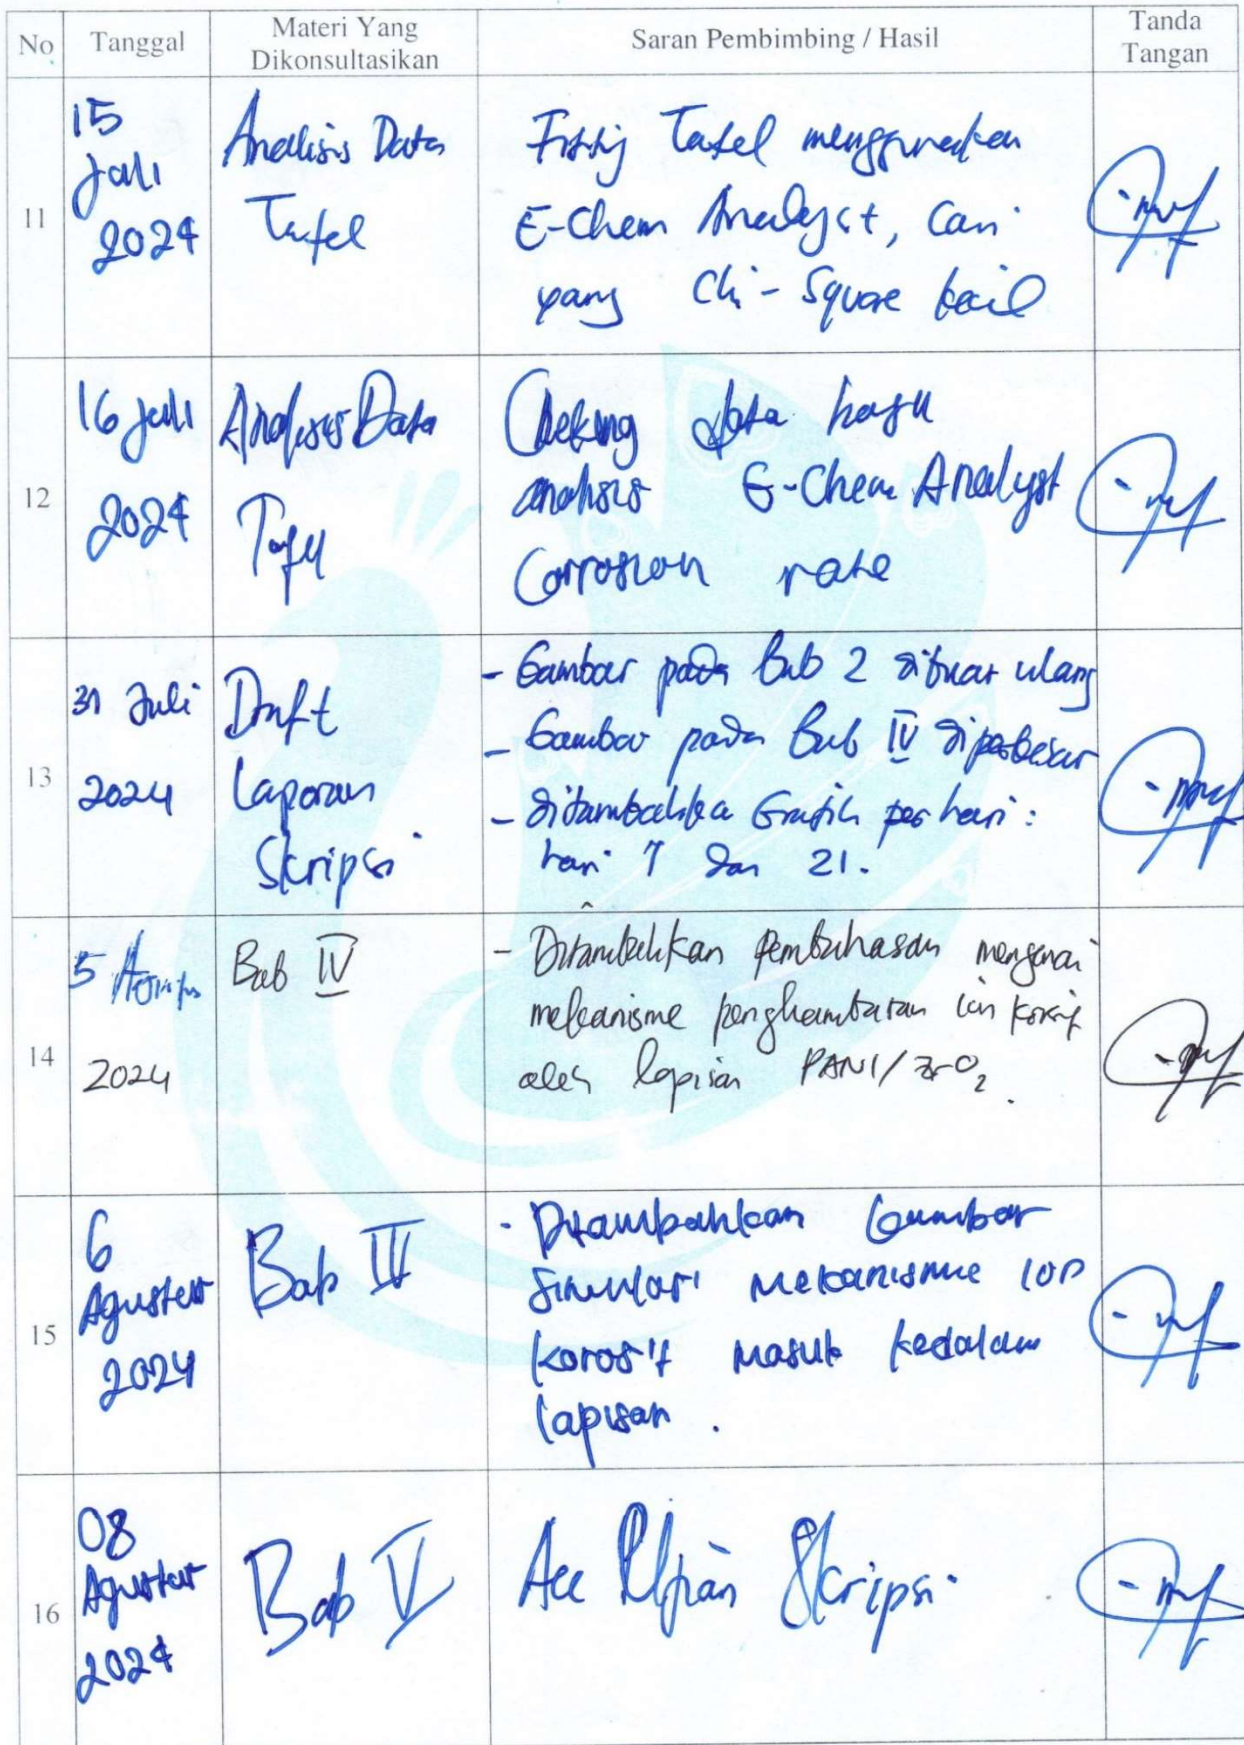 No
Tanggal
Materi Yang
Dikonsultasikan
Saran Pembimbing / Hasil
Tanda
Tangan
11
15
Juli
2024
Analisis Data
Tafel
Fitting Tafel menggunakan
E-Chem Analyst, cari
yang Chi-Square kecil
12
16 Juli
2024
Analisis Data
Tafel
Cheking data hasil
analisis E-Chem Analyst
Corrosion rate
13
31 Juli
2024
Draft
Laporan
Skripsi
- Gambar pada Bab 2 dibuat ulang
- Gambar pada Bab IV diperbesar
- ditambahka Grafik per hari:
hari 7 dan 21.
14
5 Agustus
2024
Bab IV
- Ditambahkan Pembahasan mengenai
mekanisme penghambatan ion korosif
oleh lapisan PANI/ZrO₂.
15
6
Agustus
2024
Bab IV
- Ditambahkan Gambar
Simulasi mekanisme ion
korosif masuk kedalam
lapisan.
16
08
Agustus
2024
Bab V
Acc Skripsi